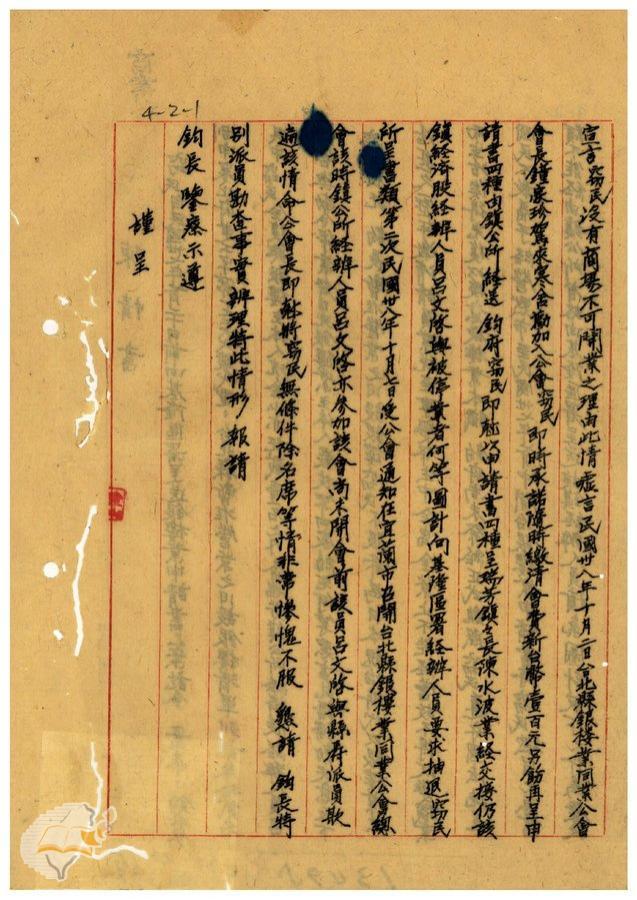 4-2-1
宣言竊民沒有商場不可開業之理由此情虛言民國卅八年十月二日台北縣銀樓業同業公會
會長鐘慶珍駕來寒舍勸加入公會竊民即時承諾隨將繳清會費新台幣壹百元另飭再呈申
請書四種由鎮公所經送 鈞府竊民即赴以申請書四種呈瑞芳鎮々長陳水波業經交樓仍該
鎮經濟股經辦人員呂文啓與被停業者何等圖計向基隆區署經辦人員要求抽退竊民
所呈書類第二次民國卅八年十月七日受公會通知在宜蘭市召開台北縣銀樓業同業公會總
會該時鎮公所經辦人員呂文啓亦參加該會尚未開會前該員呂文啓與縣府派員欺
瞞該情命公會長即赴將竊民無條件除名席等情非常慘愧不服 懇請 鈞長特
別派員勘查事實辦理將此情形 報請
鈞長 鑒察示遵
謹 呈